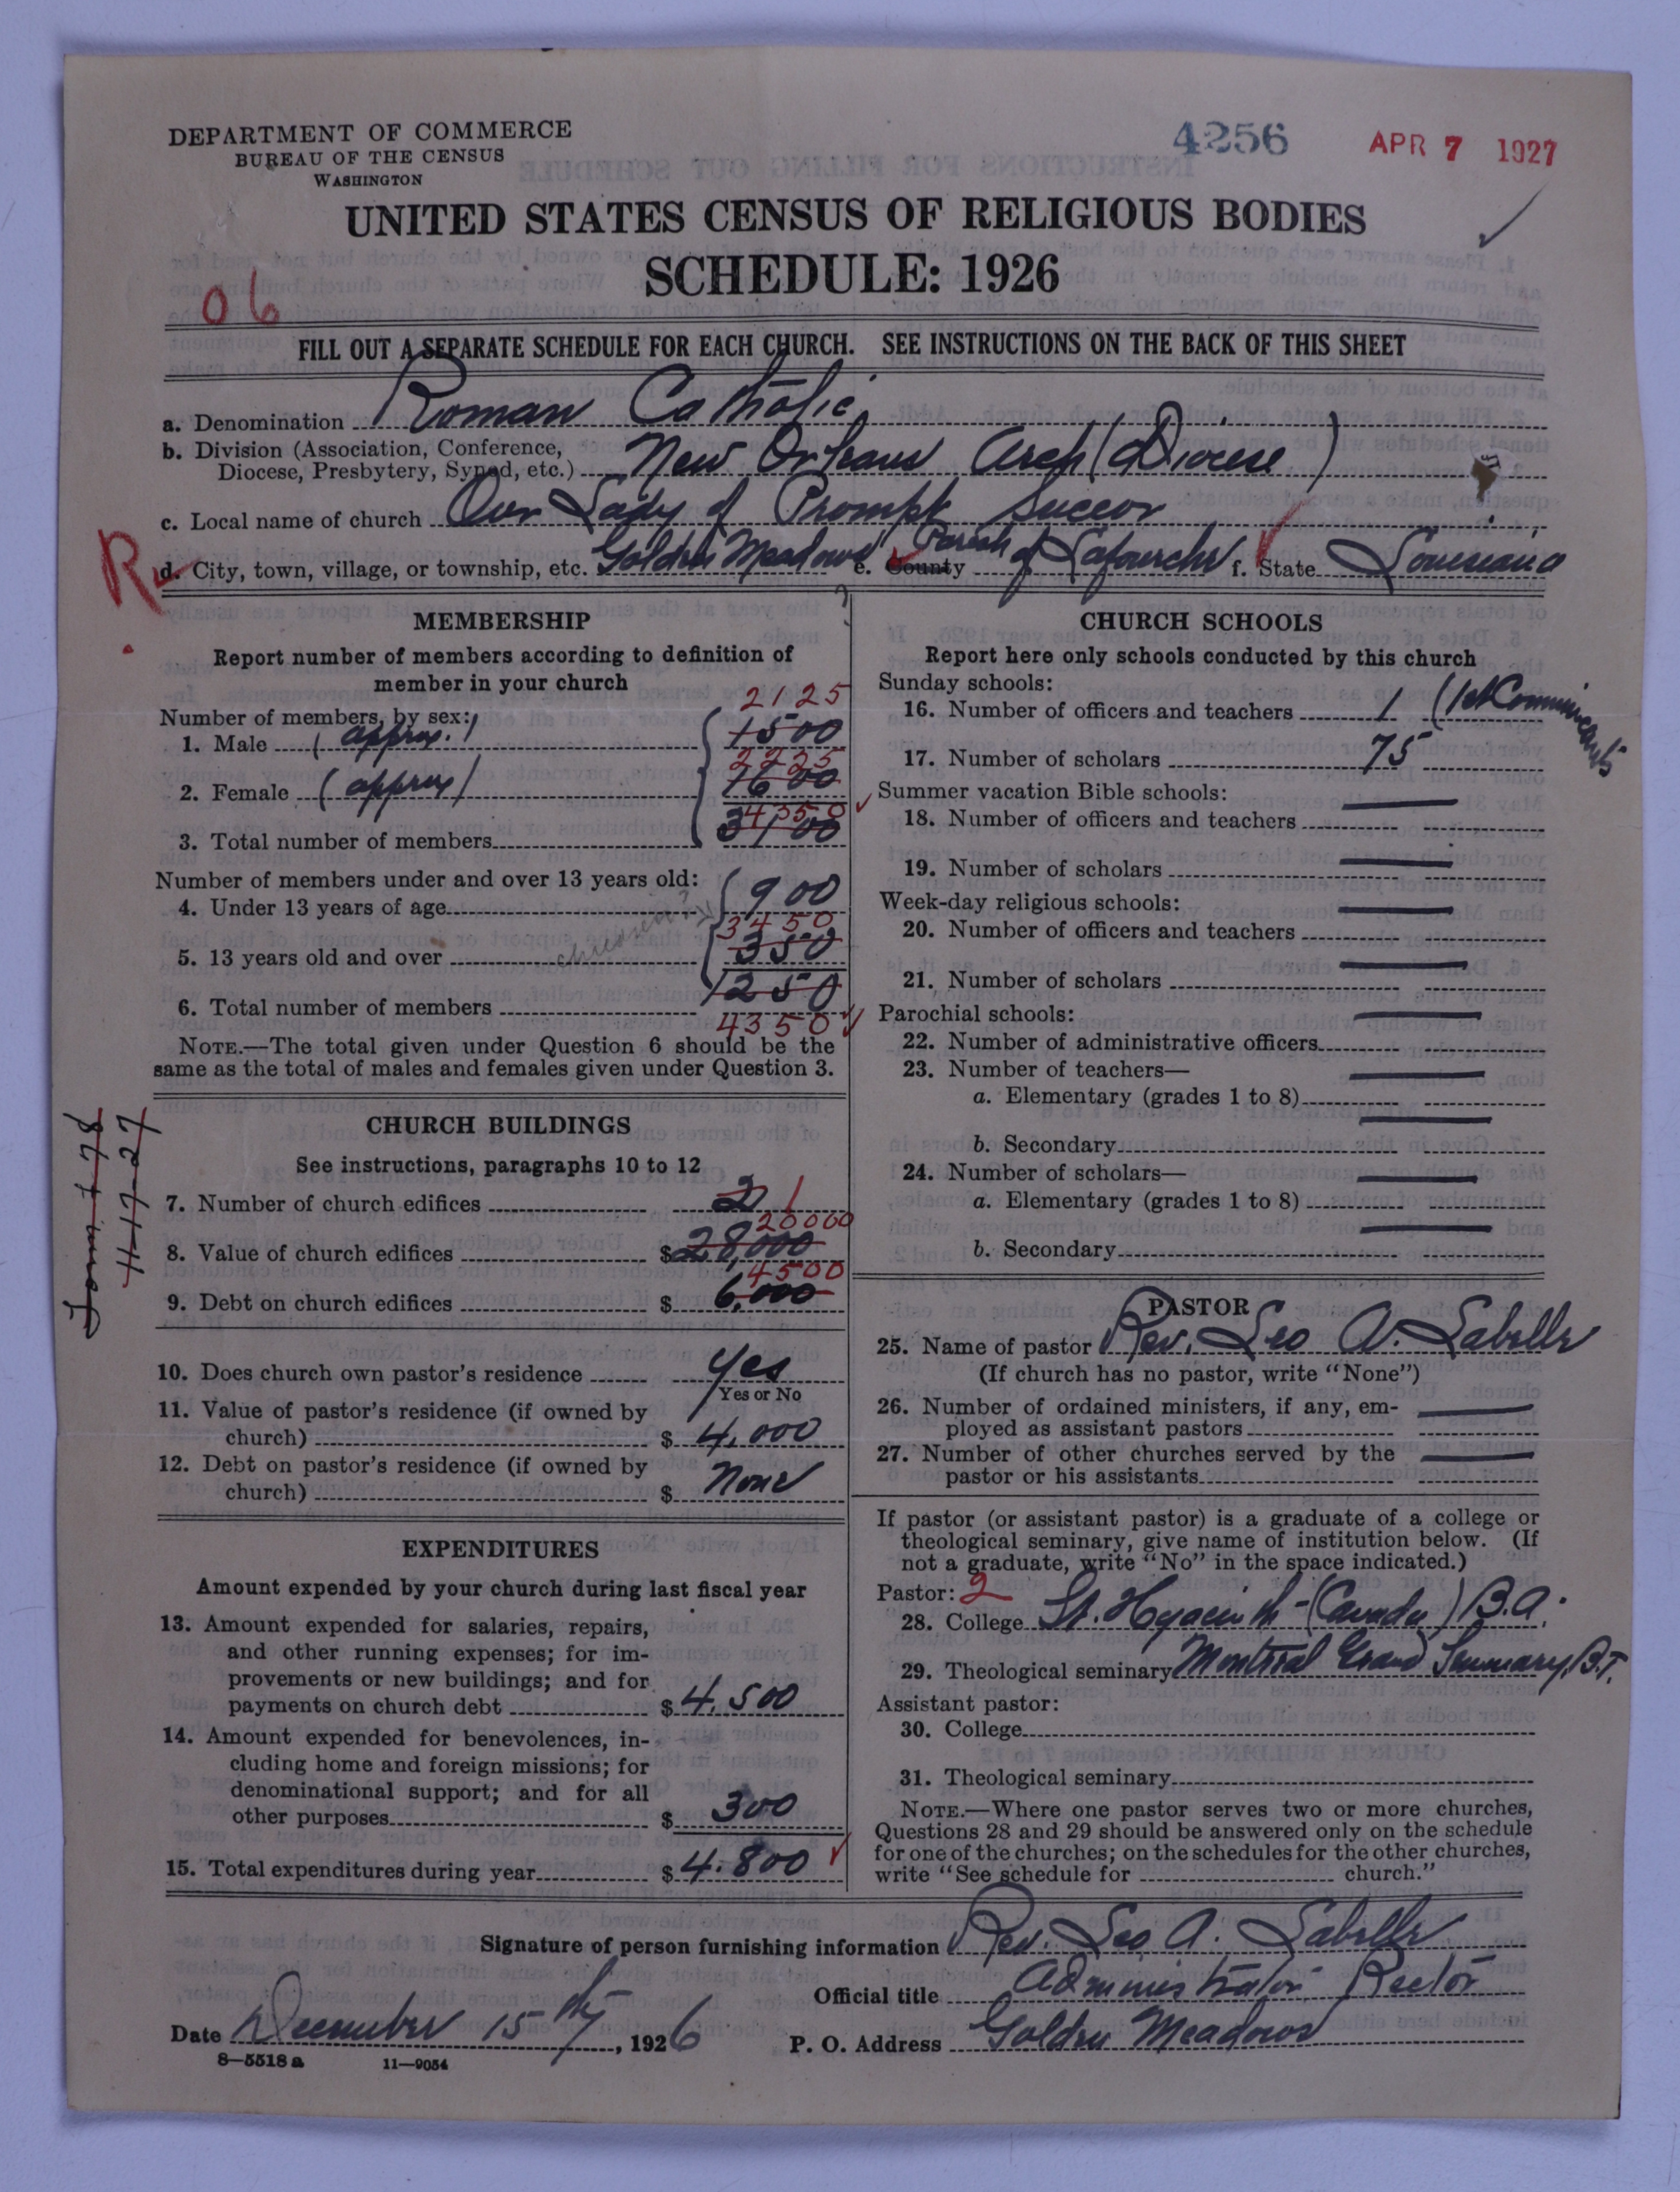 DEPARTMENT OF COMMERCE
BUREAU OF THE CENSUS
WASHINGTON
4256
APR 7 1927
UNITED STATES CENSUS OF RELIGIOUS BODIES
SCHEDULE: 1926
06
FILL OUT A SEPARATE SCHEDULE FOR EACH CHURCH. SEE INSTRUCTIONS ON THE BACK OF THIS SHEET
a. Denomination Roman Catholic
b. Division (Association, Conference,
Diocese, Presbytery, Synod, etc.) New Orleans Arch (Diocese)
c. Local name of church Our Lady of Prompt Succor
R
d. City, town, village, or township, etc. Golden Meadows e. County Parish of Lafourche f. State Louisiana
MEMBERSHIP
Report number of members according to definition of
member in your church
Number of members, by sex:
2125
1. Male (approx.) 1500
2225
2. Female (approx) 1600
4350
3. Total number of members 3100
Number of members under and over 13 years old:
4. Under 13 years of age 900
3450
5. 13 years old and over children? 350
6. Total number of members 1250
4350
NOTE.—The total given under Question 6 should be the
same as the total of males and females given under Question 3.
CHURCH BUILDINGS
See instructions, paragraphs 10 to 12
7. Number of church edifices 2 1
20000
8. Value of church edifices $ 28,000
4500
9. Debt on church edifices $ 6,000
4-17-27
10. Does church own pastor's residence Yes
Yes or No
11. Value of pastor's residence (if owned by
church) $ 4,000
12. Debt on pastor's residence (if owned by
church) $ None
EXPENDITURES
Amount expended by your church during last fiscal year
13. Amount expended for salaries, repairs,
and other running expenses; for im-
provements or new buildings; and for
payments on church debt $ 4,500
14. Amount expended for benevolences, in-
cluding home and foreign missions; for
denominational support; and for all
other purposes $ 300
15. Total expenditures during year $ 4.800
CHURCH SCHOOLS
Report here only schools conducted by this church
Sunday schools:
16. Number of officers and teachers 1 (1st Communicants
17. Number of scholars 75
Summer vacation Bible schools:
18. Number of officers and teachers
19. Number of scholars
Week-day religious schools:
20. Number of officers and teachers
21. Number of scholars
Parochial schools:
22. Number of administrative officers
23. Number of teachers—
a. Elementary (grades 1 to 8)
b. Secondary
24. Number of scholars—
a. Elementary (grades 1 to 8)
b. Secondary
PASTOR
25. Name of pastor Rev. Leo A. Labelle
(If church has no pastor, write "None")
26. Number of ordained ministers, if any, em-
ployed as assistant pastors
27. Number of other churches served by the
pastor or his assistants
If pastor (or assistant pastor) is a graduate of a college or
theological seminary, give name of institution below. (If
not a graduate, write "No" in the space indicated.)
Pastor: 2
28. College St. Hyacinth - (Canada) B.A.
29. Theological seminary Montreal Grand Seminary, B.T.
Assistant pastor:
30. College
31. Theological seminary
NOTE.—Where one pastor serves two or more churches,
Questions 28 and 29 should be answered only on the schedule
for one of the churches; on the schedules for the other churches,
write "See schedule for church."
Signature of person furnishing information Rev. Leo A. Labelle
Official title Administrator Rector
Date December 15th, 1926 P. O. Address Golden Meadows
8—5518 a 11—9054